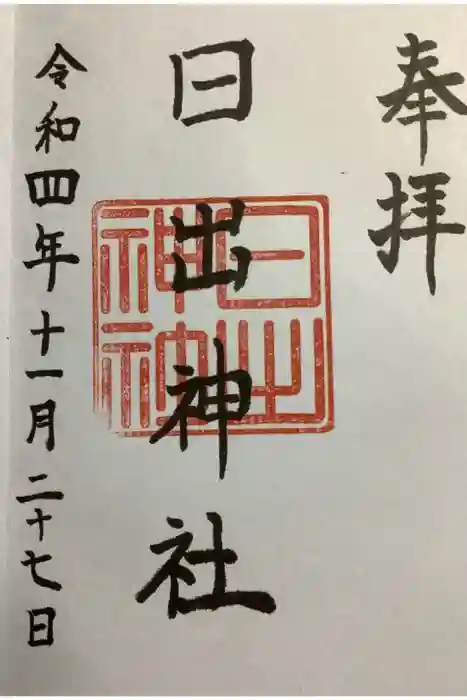 奉拝
日出神社
日出
神
令和四年十一月二十七日